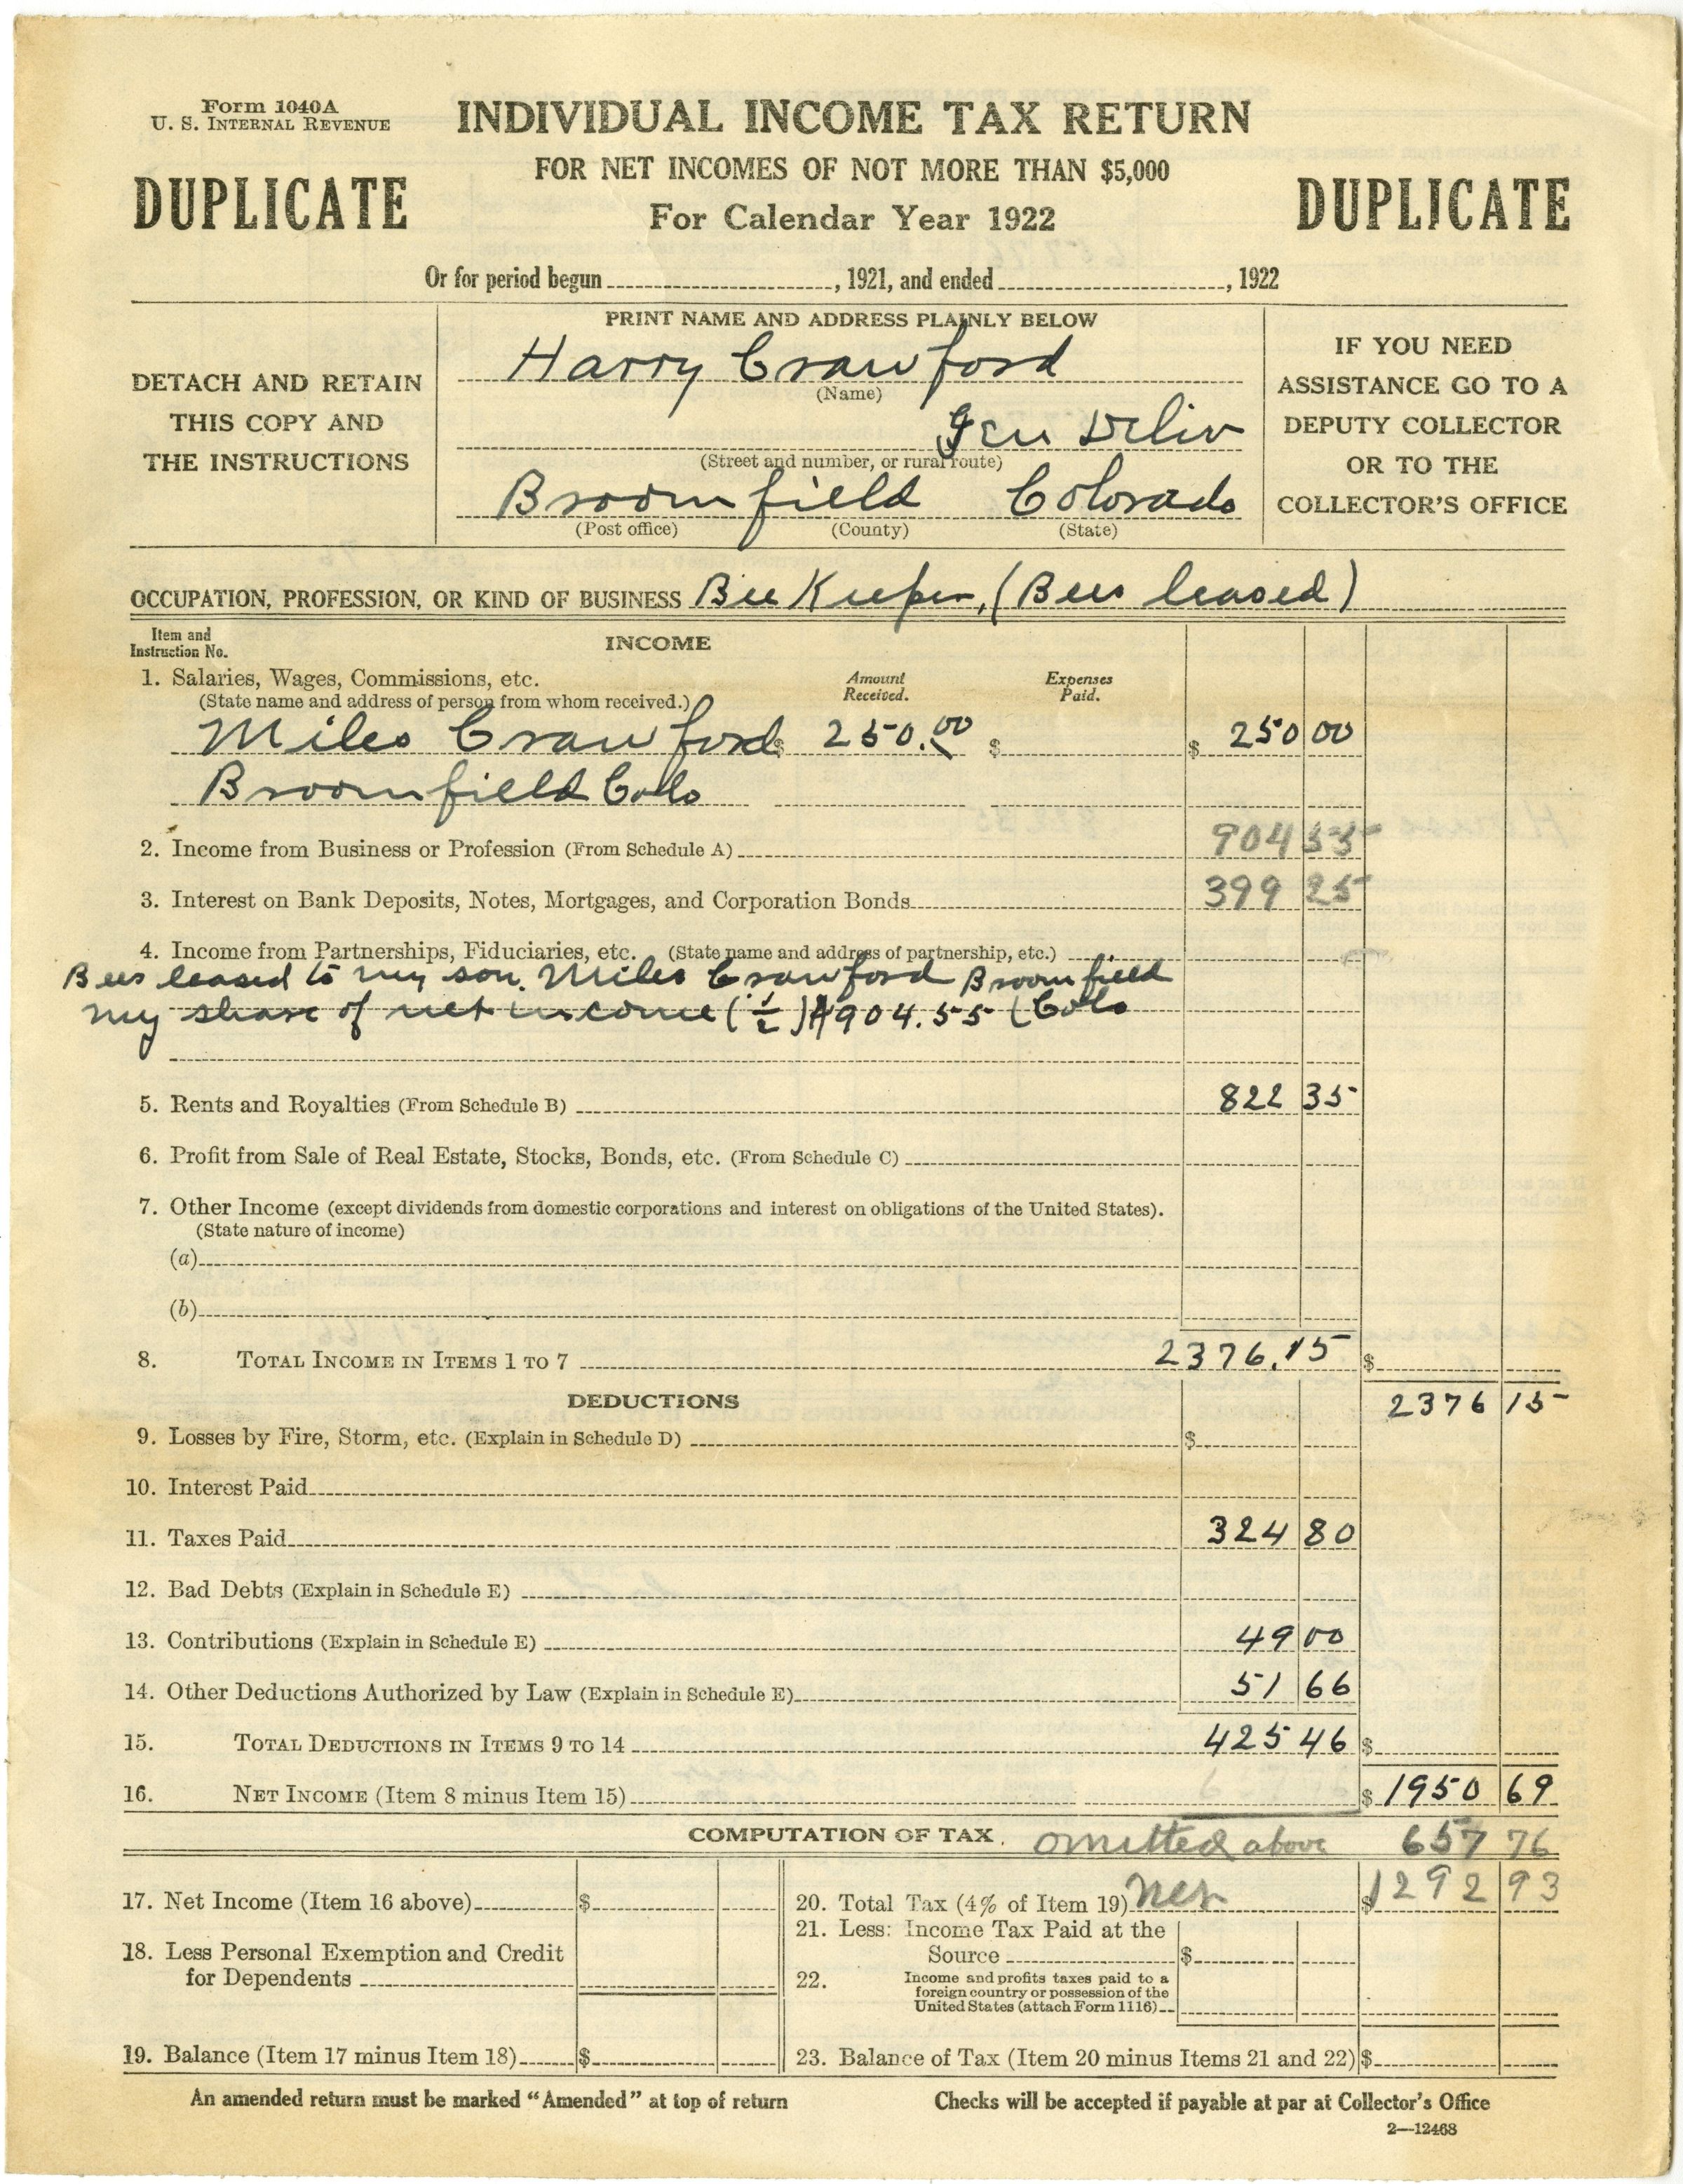 Form 1040A
U. S. INTERNAL REVENUE
DUPLICATE
INDIVIDUAL INCOME TAX RETURN
FOR NET INCOMES OF NOT MORE THAN $5,000
For Calendar Year 1922
DUPLICATE
Or for period begun , 1921, and ended , 1922
DETACH AND RETAIN
THIS COPY AND
THE INSTRUCTIONS
PRINT NAME AND ADDRESS PLAINLY BELOW
Harry Crawford
(Name)
Gen Deliv
(Street and number, or rural route)
Broomfield Colorado
(Post office) (County) (State)
IF YOU NEED
ASSISTANCE GO TO A
DEPUTY COLLECTOR
OR TO THE
COLLECTOR'S OFFICE
OCCUPATION, PROFESSION, OR KIND OF BUSINESS Bee Keeper, (Bees leased)
Item and
Instruction No.
INCOME
1. Salaries, Wages, Commissions, etc. Amount Received. Expenses Paid.
(State name and address of person from whom received.)
Miles Crawford $ 250.00 $ $ 250 00
Broomfield Colo
2. Income from Business or Profession (From Schedule A) 904 55
3. Interest on Bank Deposits, Notes, Mortgages, and Corporation Bonds 399 25
4. Income from Partnerships, Fiduciaries, etc. (State name and address of partnership, etc.)
Bees leased to my son. Miles Crawford Broomfield
my share of net income (1/2) $904.55 (Colo
5. Rents and Royalties (From Schedule B) 822 35
6. Profit from Sale of Real Estate, Stocks, Bonds, etc. (From Schedule C)
7. Other Income (except dividends from domestic corporations and interest on obligations of the United States).
(State nature of income)
(a)
(b)
8. TOTAL INCOME IN ITEMS 1 TO 7 2376.15 $
DEDUCTIONS 2376 15
9. Losses by Fire, Storm, etc. (Explain in Schedule D) $
10. Interest Paid
11. Taxes Paid 324 80
12. Bad Debts (Explain in Schedule E)
13. Contributions (Explain in Schedule E) 49 00
14. Other Deductions Authorized by Law (Explain in Schedule E) 51 66
15. TOTAL DEDUCTIONS IN ITEMS 9 TO 14 425 46 $
16. NET INCOME (Item 8 minus Item 15) $ 1950 69
COMPUTATION OF TAX. omitted above 657 76
17. Net Income (Item 16 above) $
18. Less Personal Exemption and Credit
for Dependents
19. Balance (Item 17 minus Item 18) $
20. Total Tax (4% of Item 19) Net $ 1292 93
21. Less: Income Tax Paid at the
Source $
22. Income and profits taxes paid to a
foreign country or possession of the
United States (attach Form 1116)
23. Balance of Tax (Item 20 minus Items 21 and 22) $
An amended return must be marked "Amended" at top of return
Checks will be accepted if payable at par at Collector's Office
2—12468